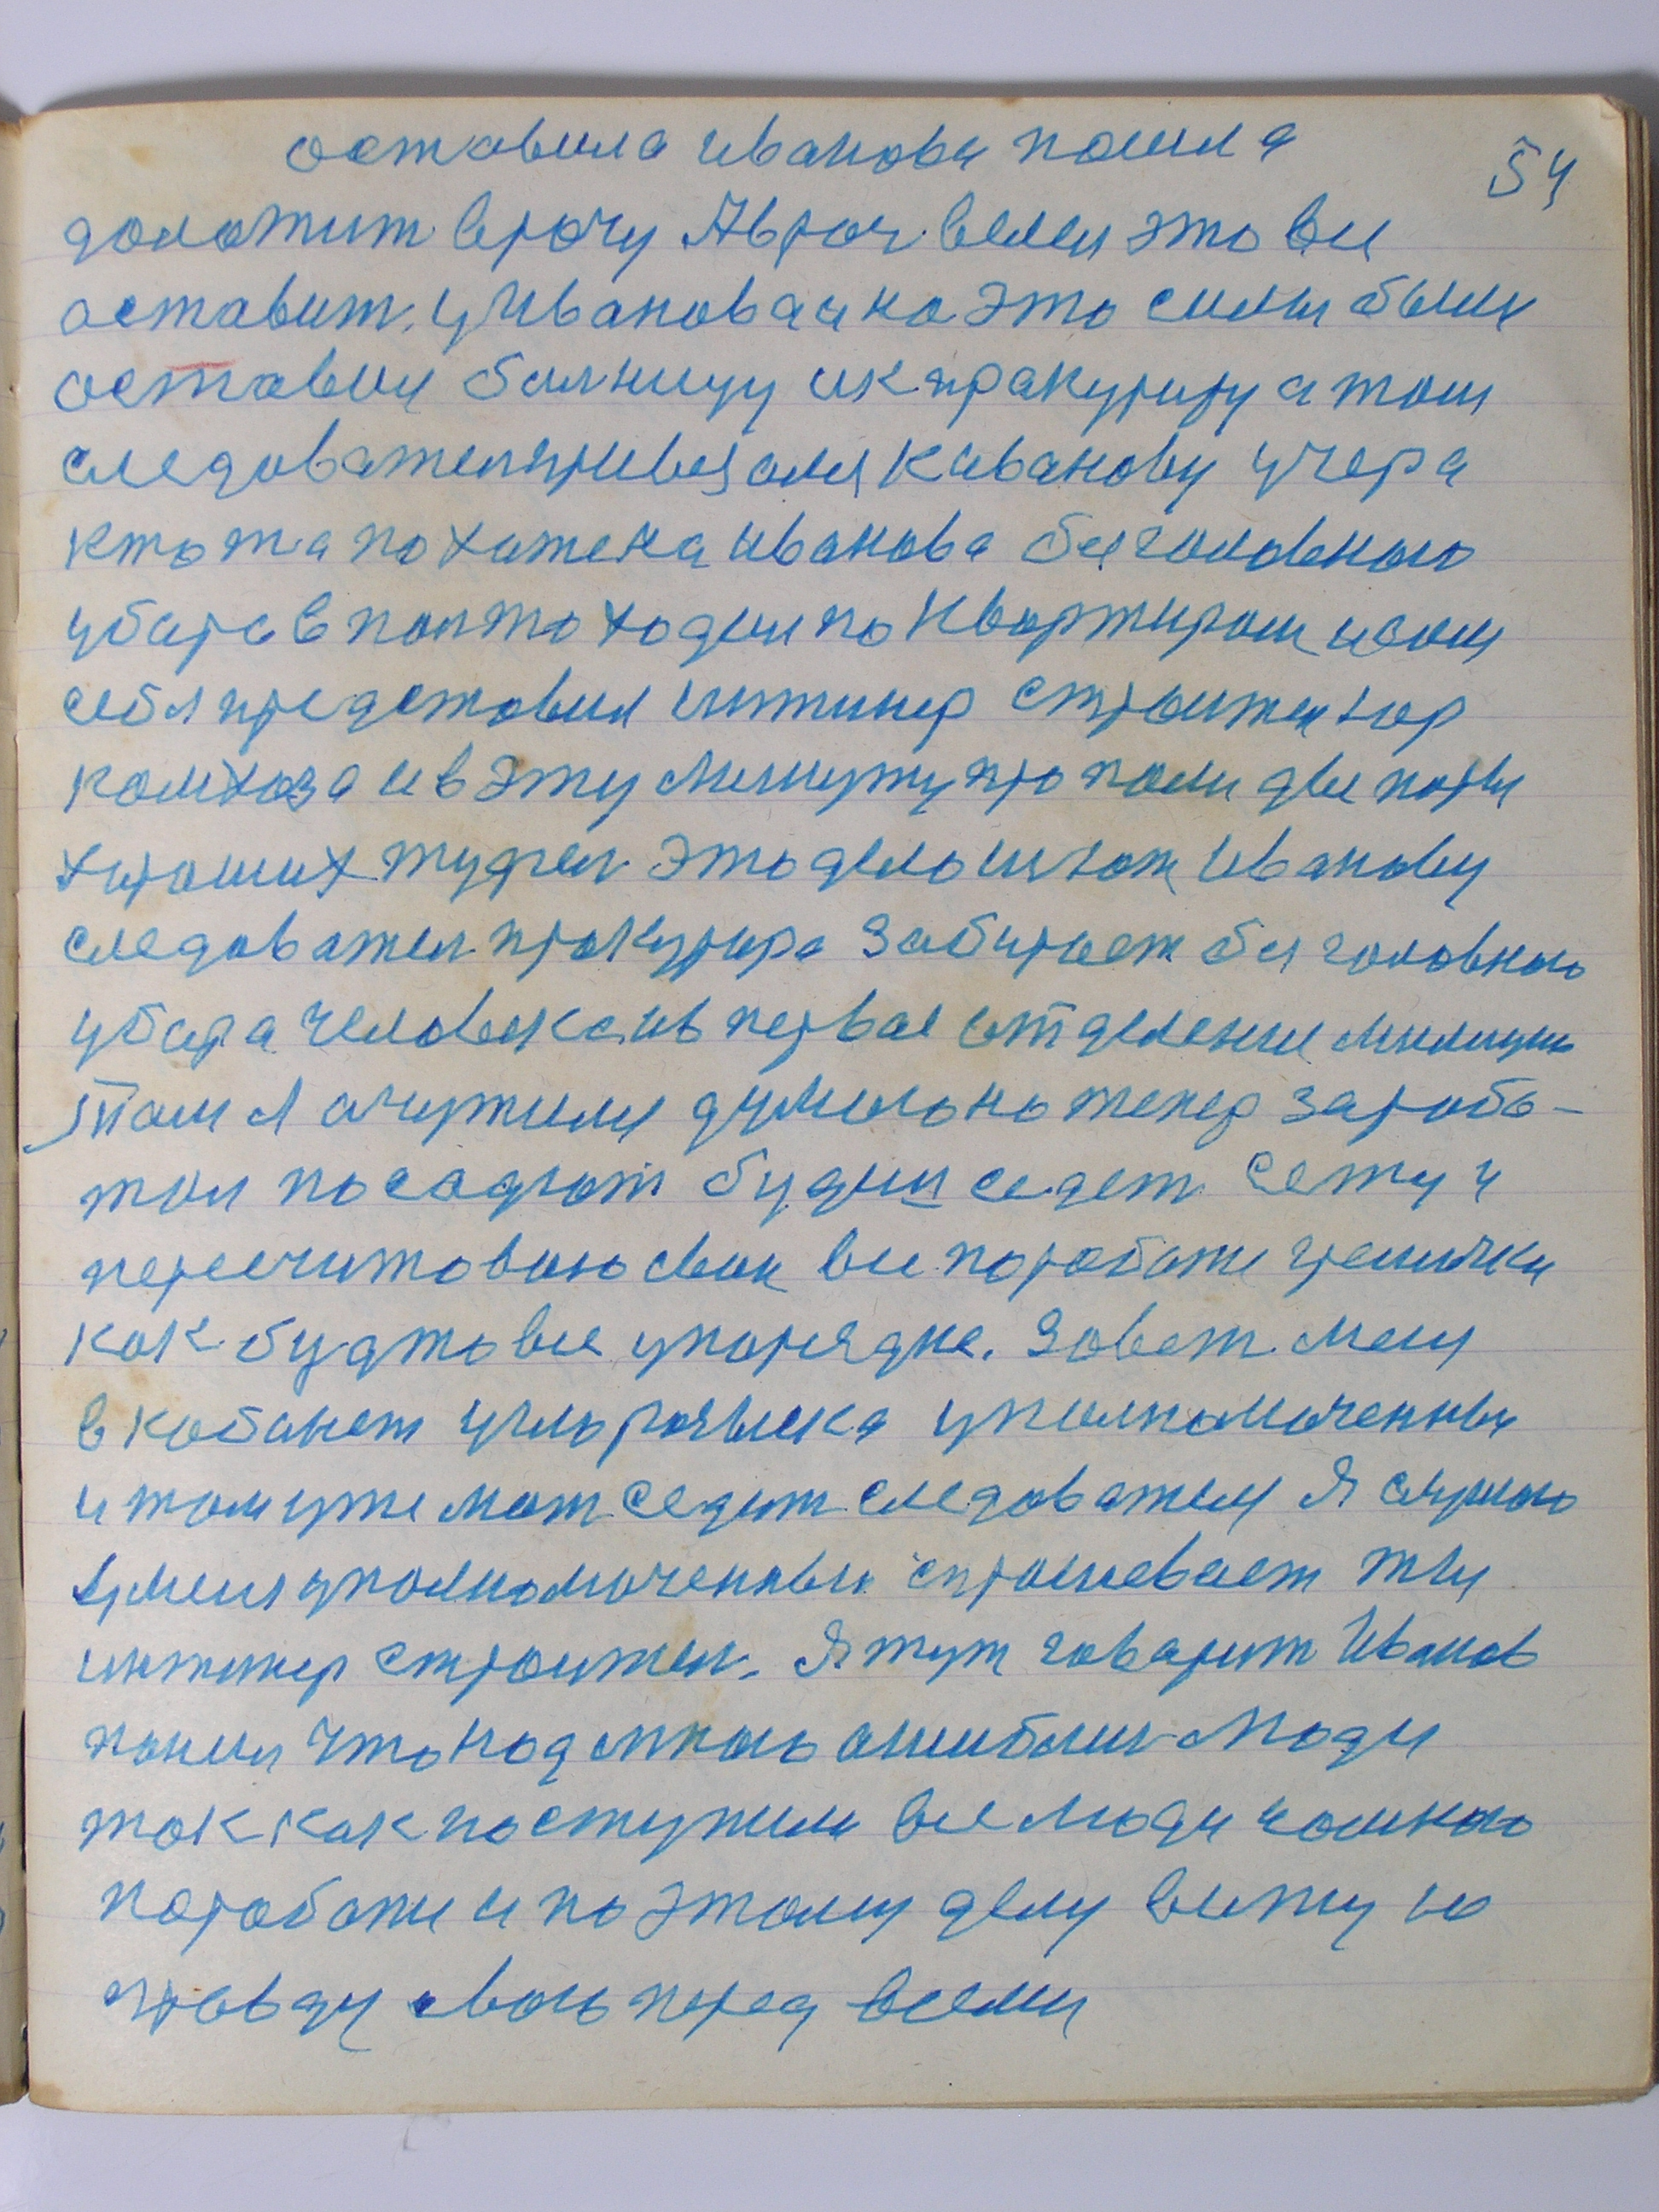 оставила иванова пошла
54
доложит врочу Авроч велел это все
оставит. у Иванова и на это силы были
оставил балницу и к пракуриру а там
следовател привязался к иванову учера
кто та похожена иванова без головного
убара в палто ходил по квартирам и сам
себя представил инжинер строител гор
комхоза и в эту минуту пропали две пары
хироших туфел это дело шют Иванову
следовател прокурора забирает без головного
убара человека и в первае отделение милиции
Там я ачутился думаю но тепер зарабо-
тал посадют будиш седет Сежу и
пересчитоваю сваи все поработе грешики
как будто все упорядке. Зовет меня
в кабинет упалномоченный
и там уже мат седит следователь Я слушаю
уменя уполномоченный спрошевает ты
инжинер строител. Я тут говарит Иванов
понил что надмною ошиблис люди
так как поступили все люди самною
поработе и по этому делу вижу ю
правду сваю перед всеми